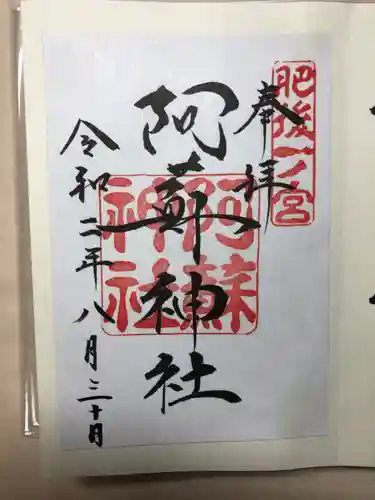 奉拝
肥後一ノ宮
阿蘇神社
阿蘇神社
令和二年八月三十日